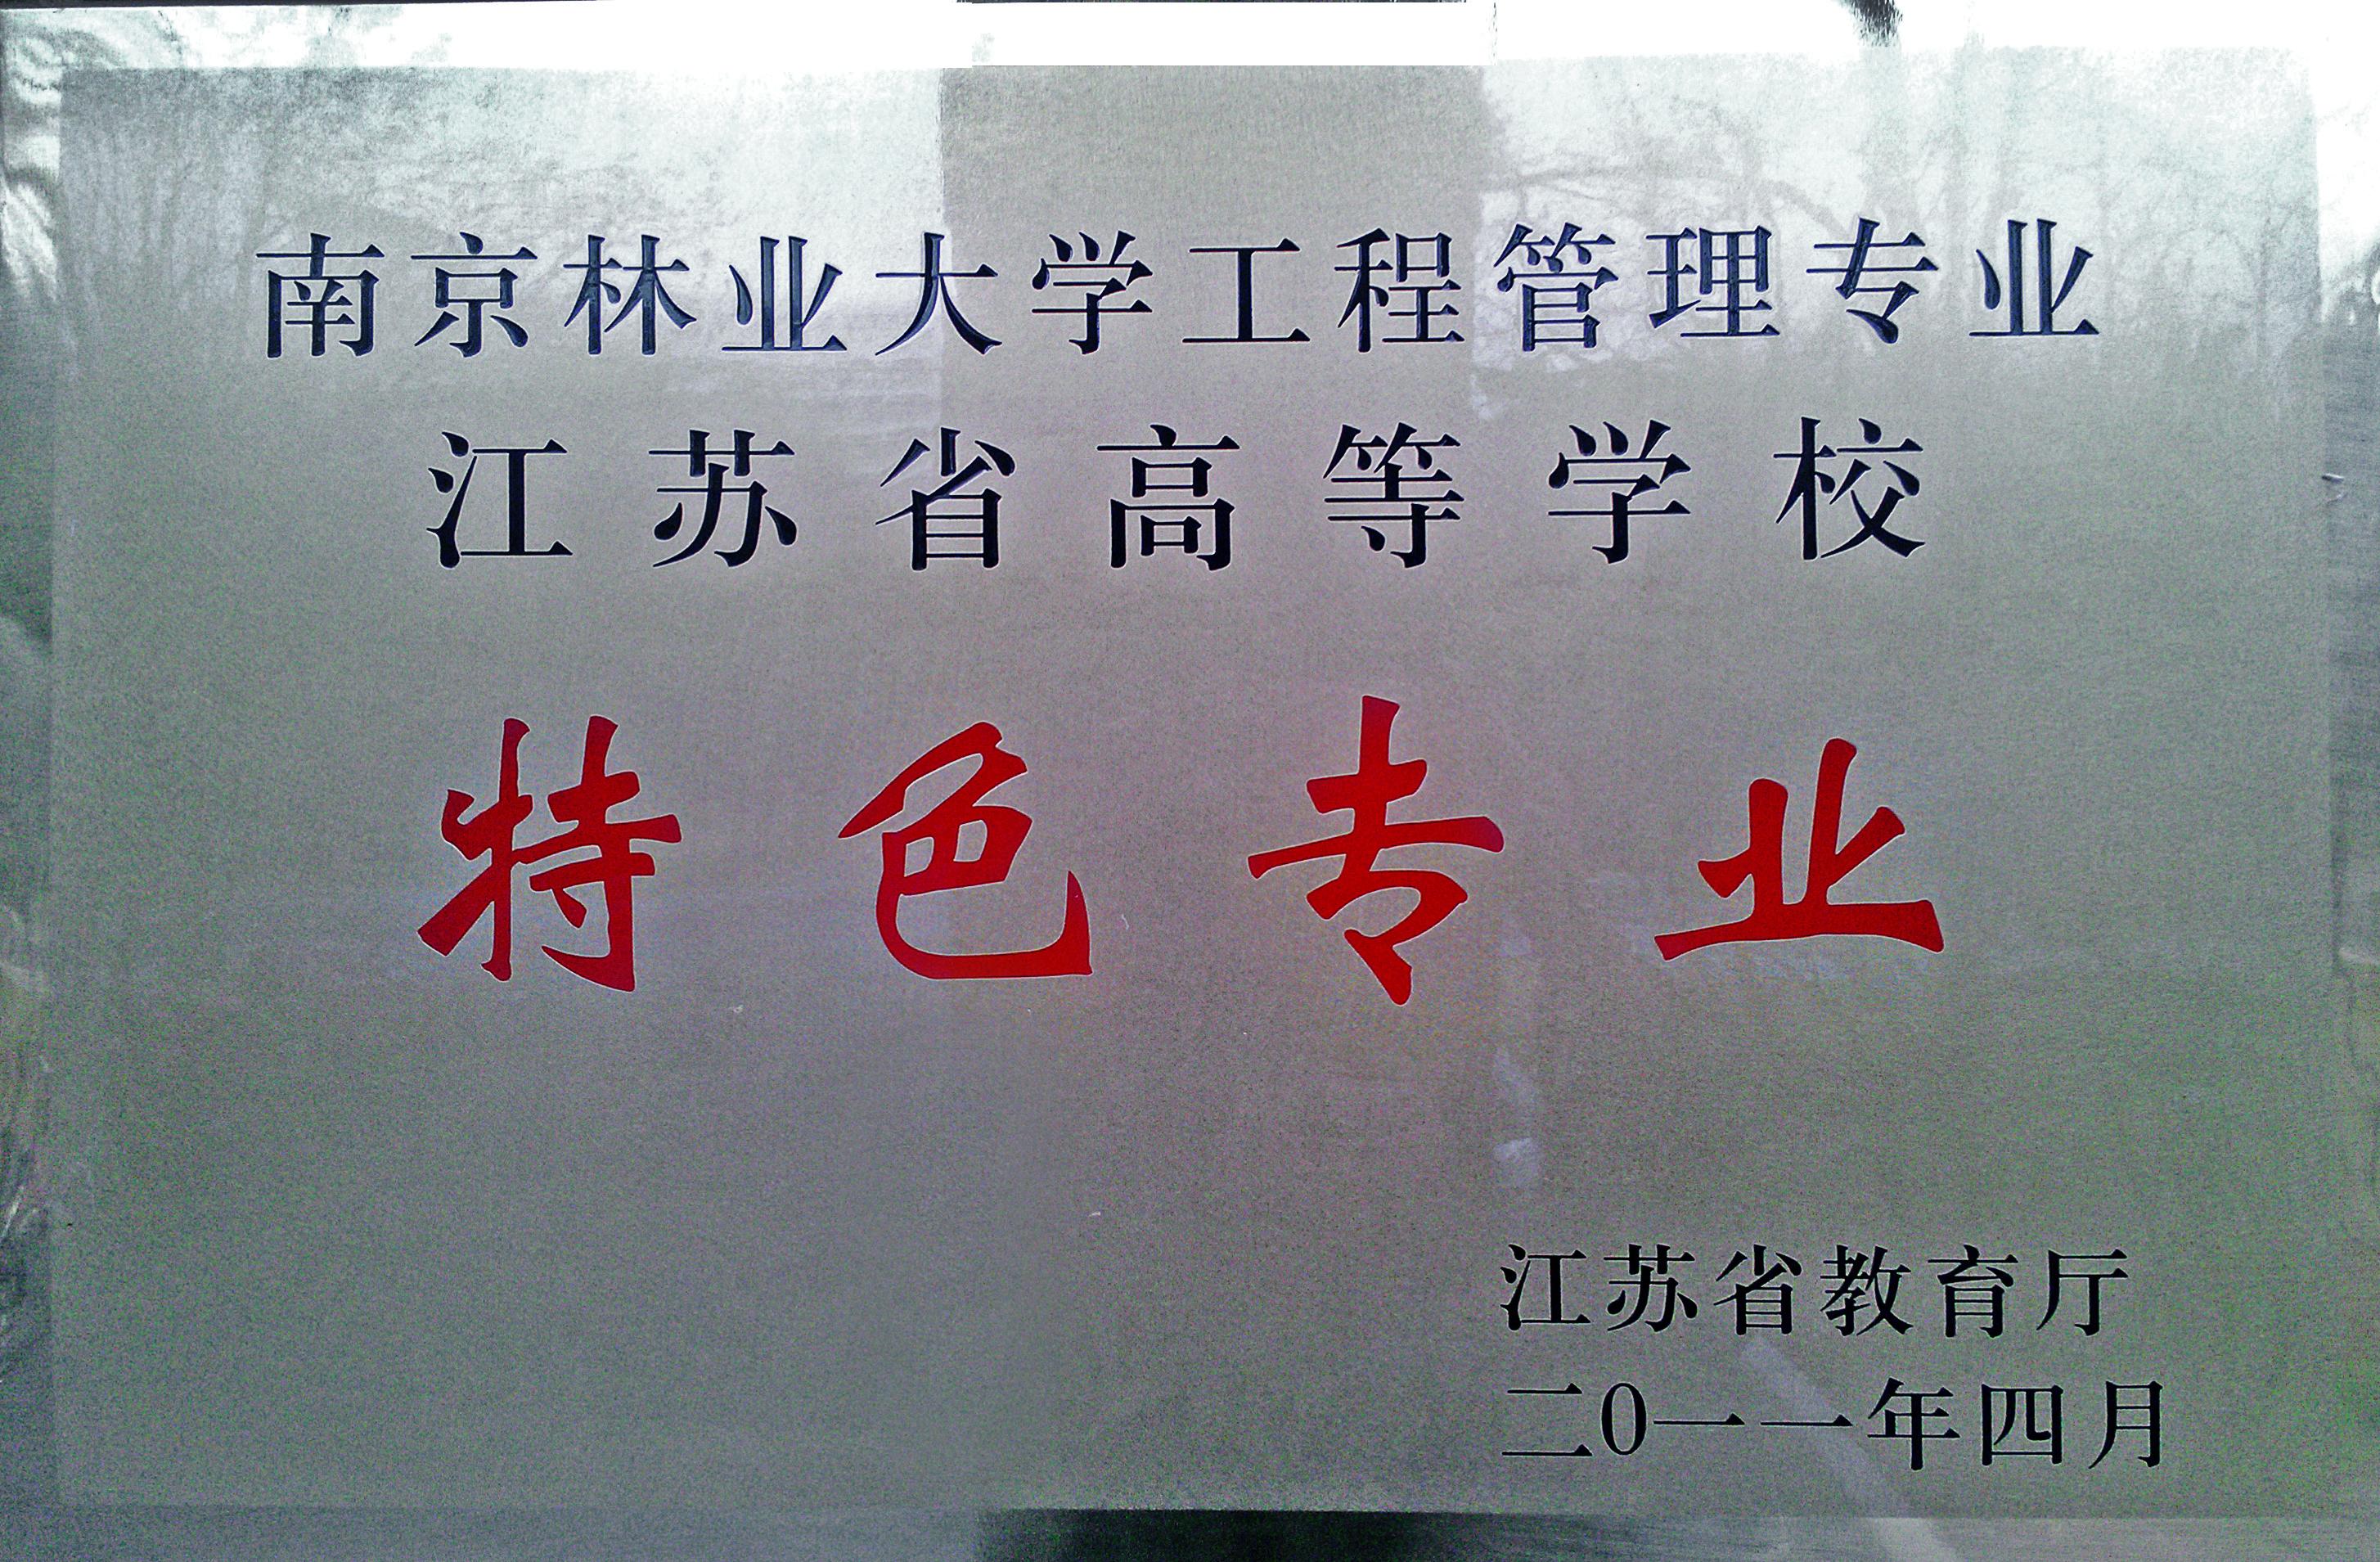 南京林业大学工程管理专业
江苏省高等学校
特色专业
江苏省教育厅
二0一一年四月